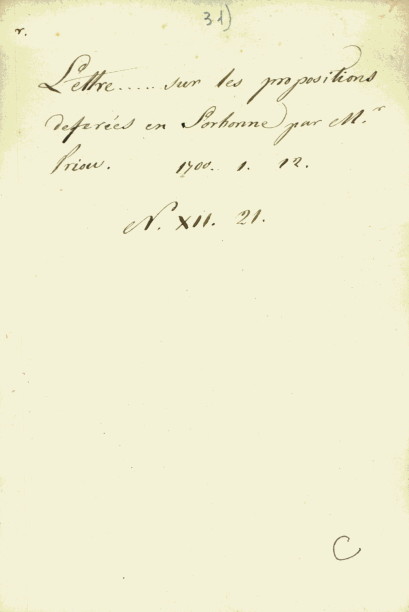 31)
r.
Lettre..... sur les propositions
deferées en Sorbonne par M.r
Priou. 1700. 1. 12.
N. XII. 21.
C